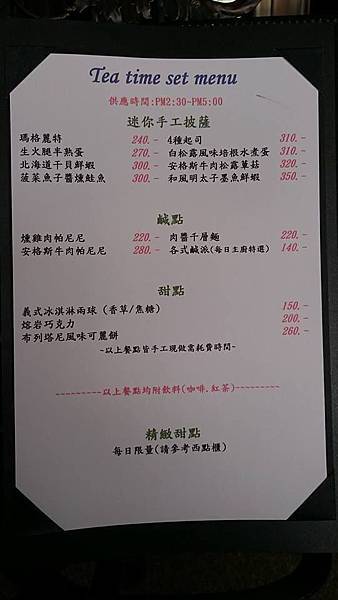 Tea time set menu
供應時間:PM2:30~PM5:00
迷你手工披薩
瑪格麗特 240.- 4種起司 310.-
生火腿半熟蛋 270.- 白松露風味培根水煮蛋 310.-
北海道干貝鮮蝦 300.- 安格斯牛肉松露蕈菇 320.-
菠菜魚子醬燻鮭魚 300.- 和風明太子墨魚鮮蝦 350.-
鹹點
燻雞肉帕尼尼 220.- 肉醬千層麵 220.-
安格斯牛肉帕尼尼 280.- 各式鹹派(每日主廚特選) 140.-
甜點
義式冰淇淋兩球 (香草/焦糖) 150.-
熔岩巧克力 200.-
布列塔尼風味可麗餅 260.-
~以上餐點皆手工現做需耗費時間~
---------以上餐點均附飲料(咖啡.紅茶)---------
精緻甜點
每日限量(請參考西點櫃)